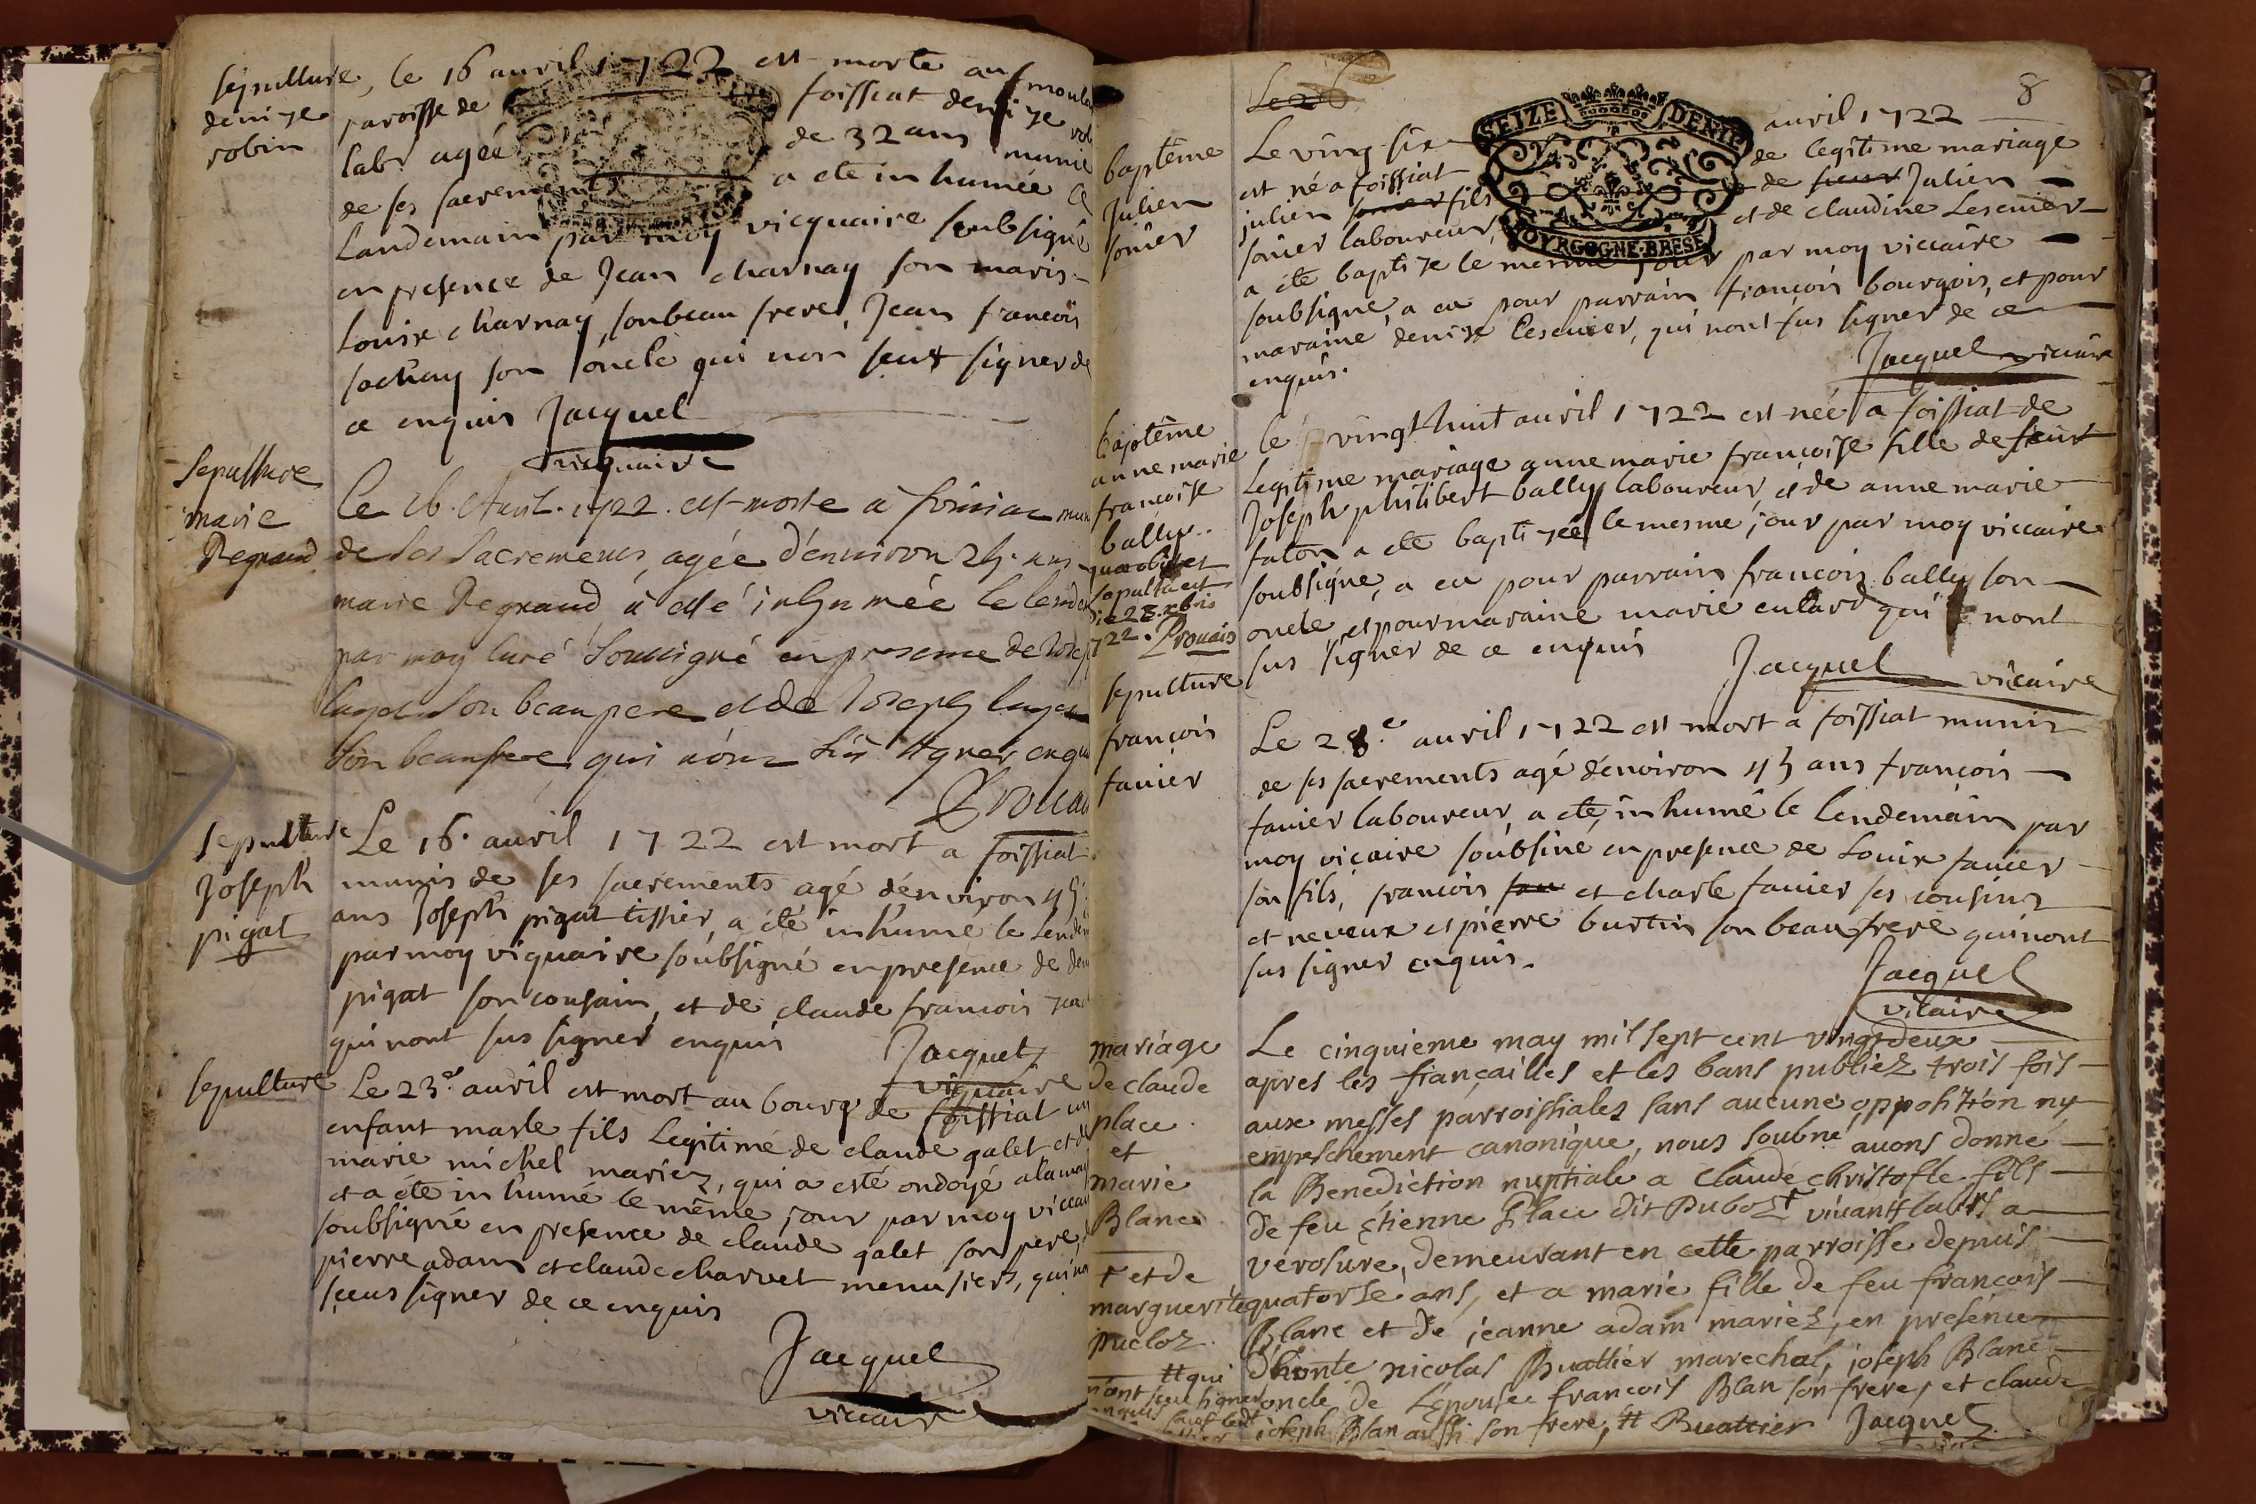 sepulture
denize
robin
le 16 avril 1722 est morte au
paroisse de foissiat denize
labr agée de 32 ans munie
de ses sacrements a eté inhumée
Landemain par moy vicquaire soubsigné
en presence de Jean charnay son maris
Louis charnay, son beau frere, Jean francois
sochay son oncle qui non seut signer de
ce enquis Jacquel
vicquaire
Sepulture
marie
Regnaud
Ce 26. Avril. 1722. est morte à foissiac
de Ses Sacremens, agée d'environ 25. ans
marie Regnaud à esté inhumée le
par moy Curé Soussigné en presence de
son beau pere et de Joseph
Son beaufrere, qui n'ont Sçu signer
sepulture
Joseph
pigat
Le 16. avril 1722 est mort a foissiat
munis de ses sacrements agé d'environ 45
ans Joseph pigat tissier, a eté inhumé le
par moy viquaire soubsigné en presence de
pigat son cousain, et de claude francois
qui nont sus signer enquis
Jacquel
viquaire
sepulture
Le 23.e avril est mort au bourg de foissiat un
enfant masle fils Legitime de claude galet et de
marie michel mariez, qui a esté ondoyé
et a eté inhumé le même jour par moy
soubsigné en presence de claude galet son pere,
pierre adam et claude charvet menusiers,
sceus signer de ce enquis
Jacquel
viccaire
8
Le 26
SEIZE DENIE
BOVRGOGNE·BRESE
baptême
Julien
sonier
Le ving six avril 1722
est né a foissiat de legitime mariage
julien fils de Julien
sonier laboureur, et de claudine Lescuier
a eté baptize le meme jour par moy viccaire
soubsigne, a eu pour parrain francois bourgois, et pour
maraine denise lescuier, qui nont sus signer de ce
enquis.
Jacquel
baptême
anne marie
francoise
bally..
quæ obiit et
sepulta est
die 28 xbris
722. Prouais
le vingt huit avril 1722 est née a foissiat de
Legitime mariage anne marie françoise fille de
Joseph philibert bally laboureur, et de anne marie
faton a eté baptizée le mesme jour par moy viccaire
soubsigne, a eu pour parrain francois bally son
oncle, et pour maraine marie cutard qui nont
sus signer de ce enquis
Jacquel viccaire
sepulture
francois
favier
Le 28.e avril 1722 est mort a foissiat munis
de ses sacrements agé d'environ 45 ans francois
favier laboureur, a eté inhumé le lendemain par
moy vicaire soubsiné en presence de Louis favier
son fils, francois et charle favier ses cousins
et neveux et pierre burtin son beau frere qui nont
sus signer enquis.
Jacquel
vicaire
mariage
de claude
place
et
marie
Blanc
+ et de
marguerite
pucloz
# qui
n'ont sceu signer
Le cinquieme may mil sept cent vingt deux
apres les fiançailles et les bans publiez trois fois
aux messes parroissiales sans aucune opposition ny
empeschement canonique, nous soubné avons donné
la Benediction nuptiale a Claude christofle fils
de feu Etienne Place dit Dubost + vivant labrs a
verosure, demeurant en cette parroisse depuis
quatorse ans, et a marie fille de feu francois
Blanc et de jeanne adam mariez, en presence
d'honte nicolas Buattier marechal, joseph Blanc
oncle de l'épousee françois Blan son frere, et claude
joseph Blan aussi son frere, # Buattier Jacquel